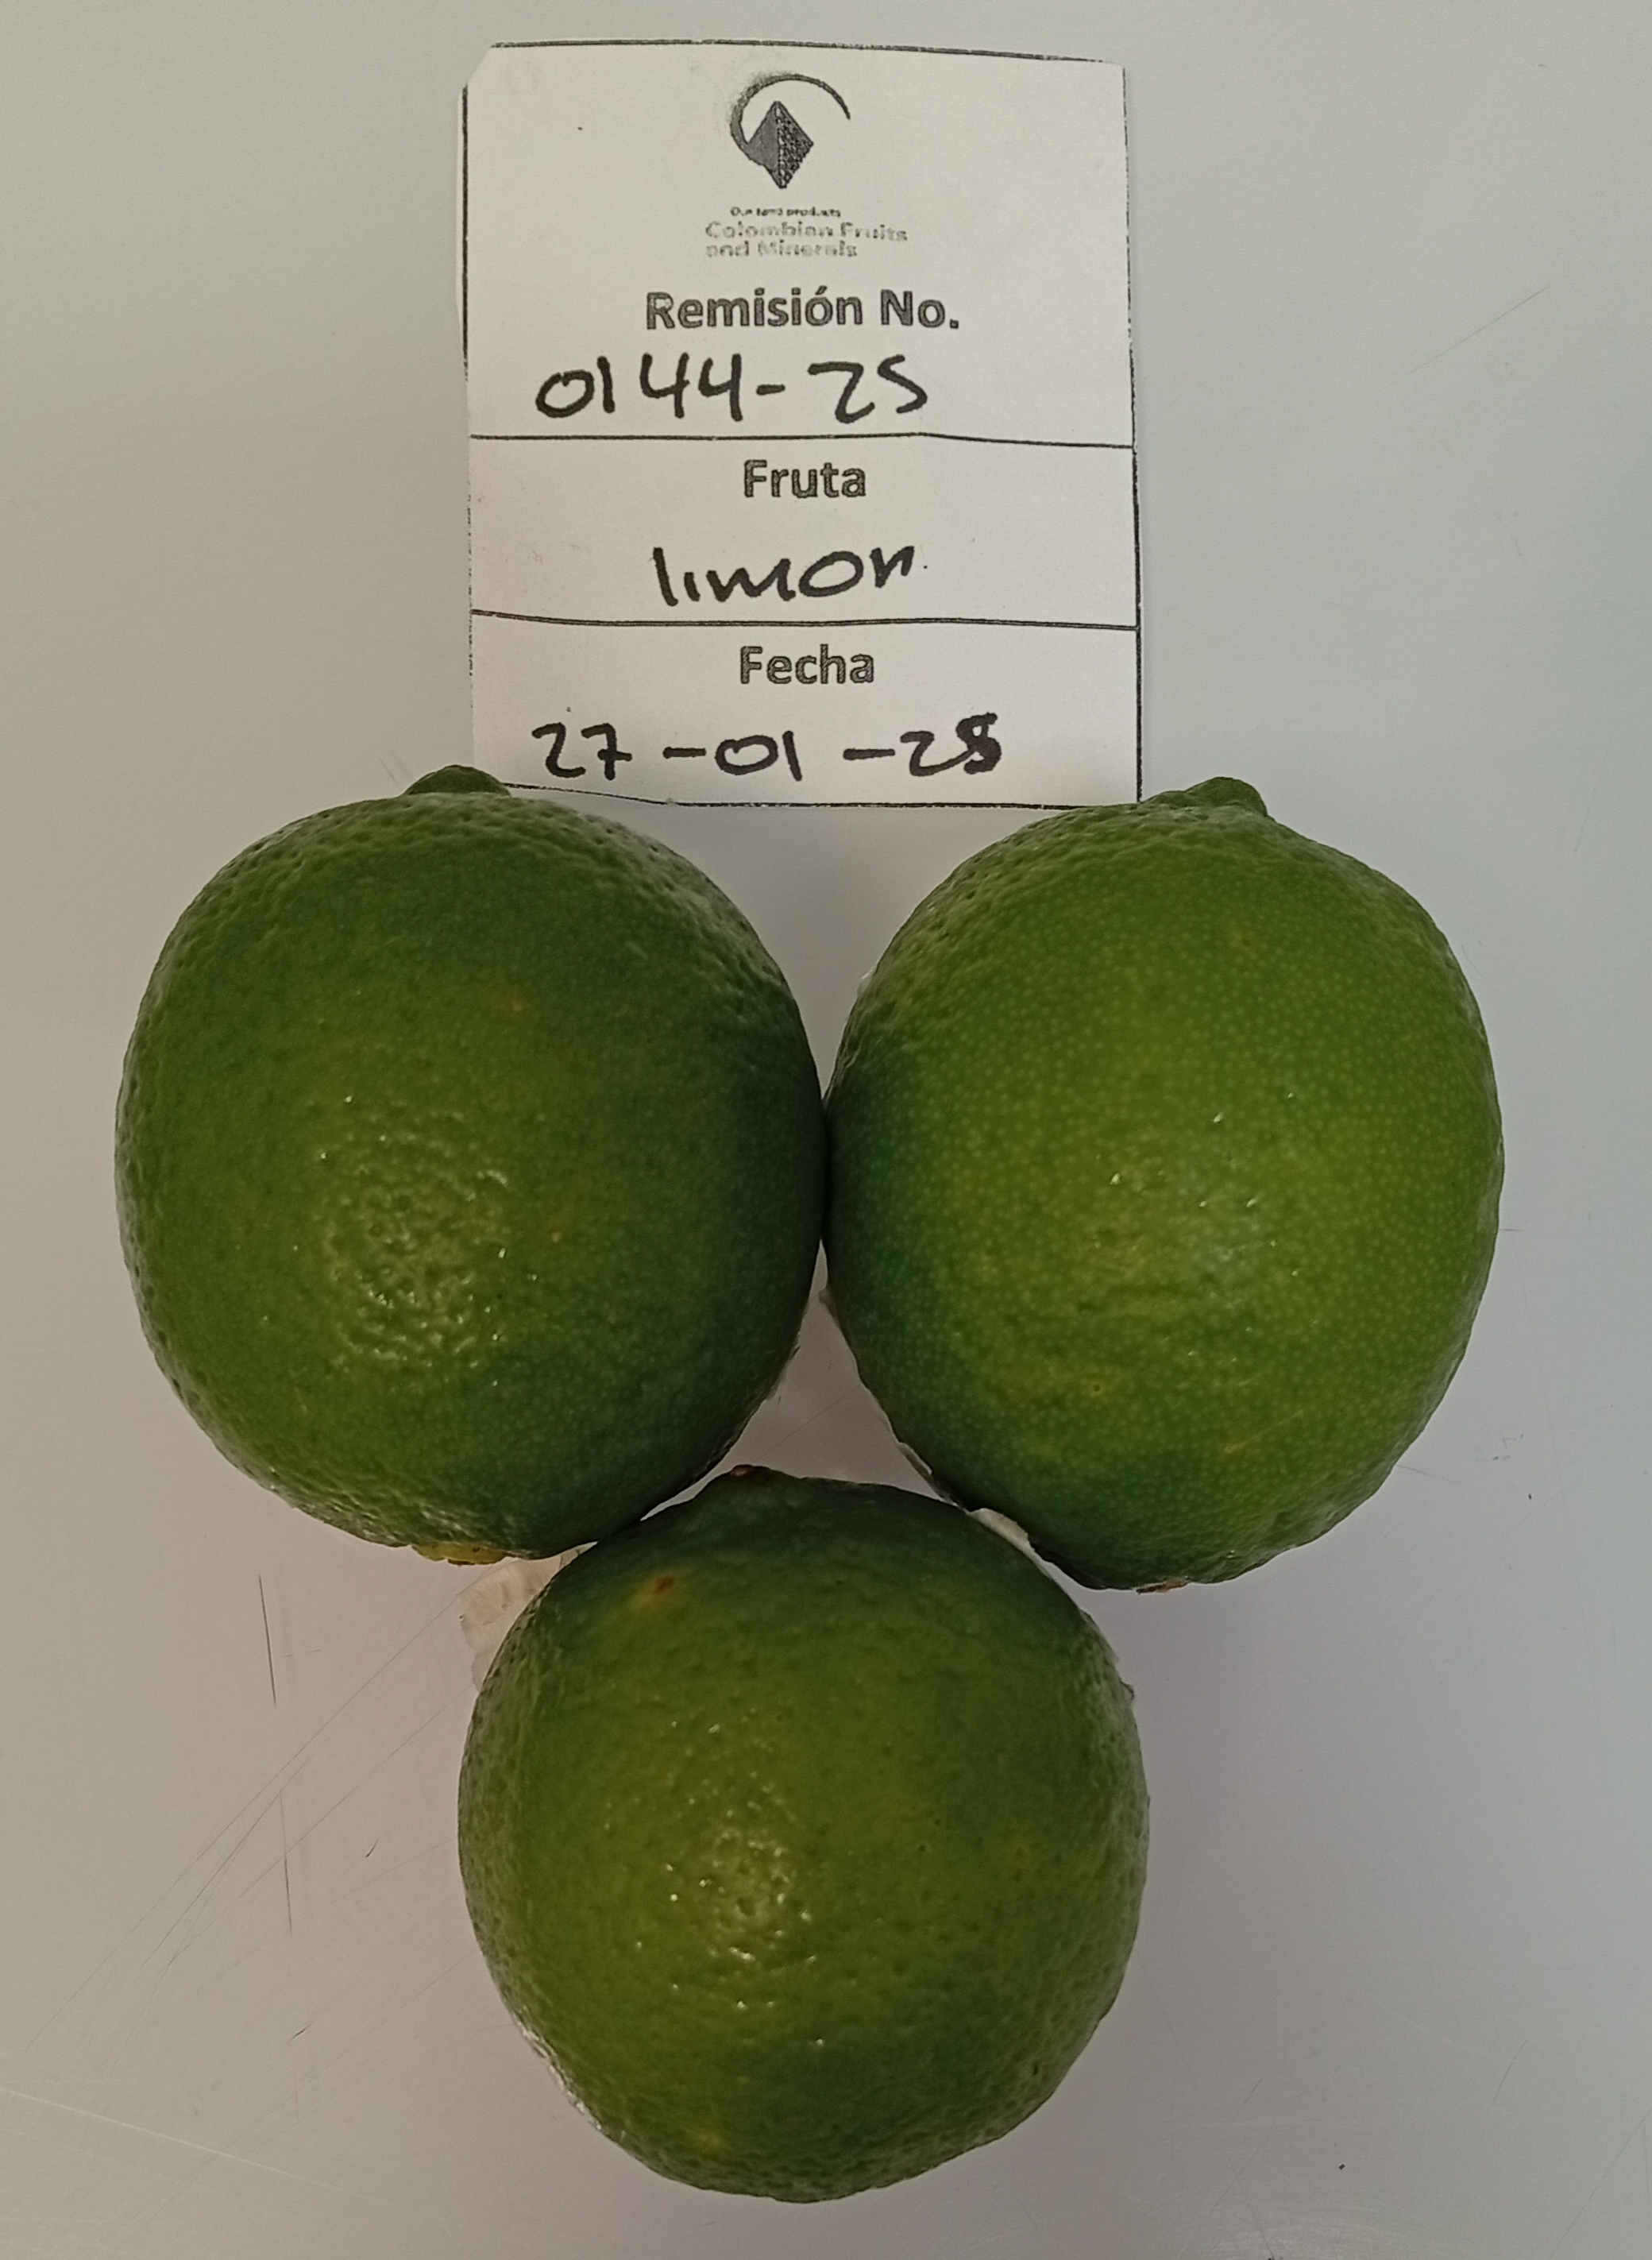 Our land products
Colombian Fruits
and Minerals
Remisión No.
0144-25
Fruta
limon
Fecha
27-01-25